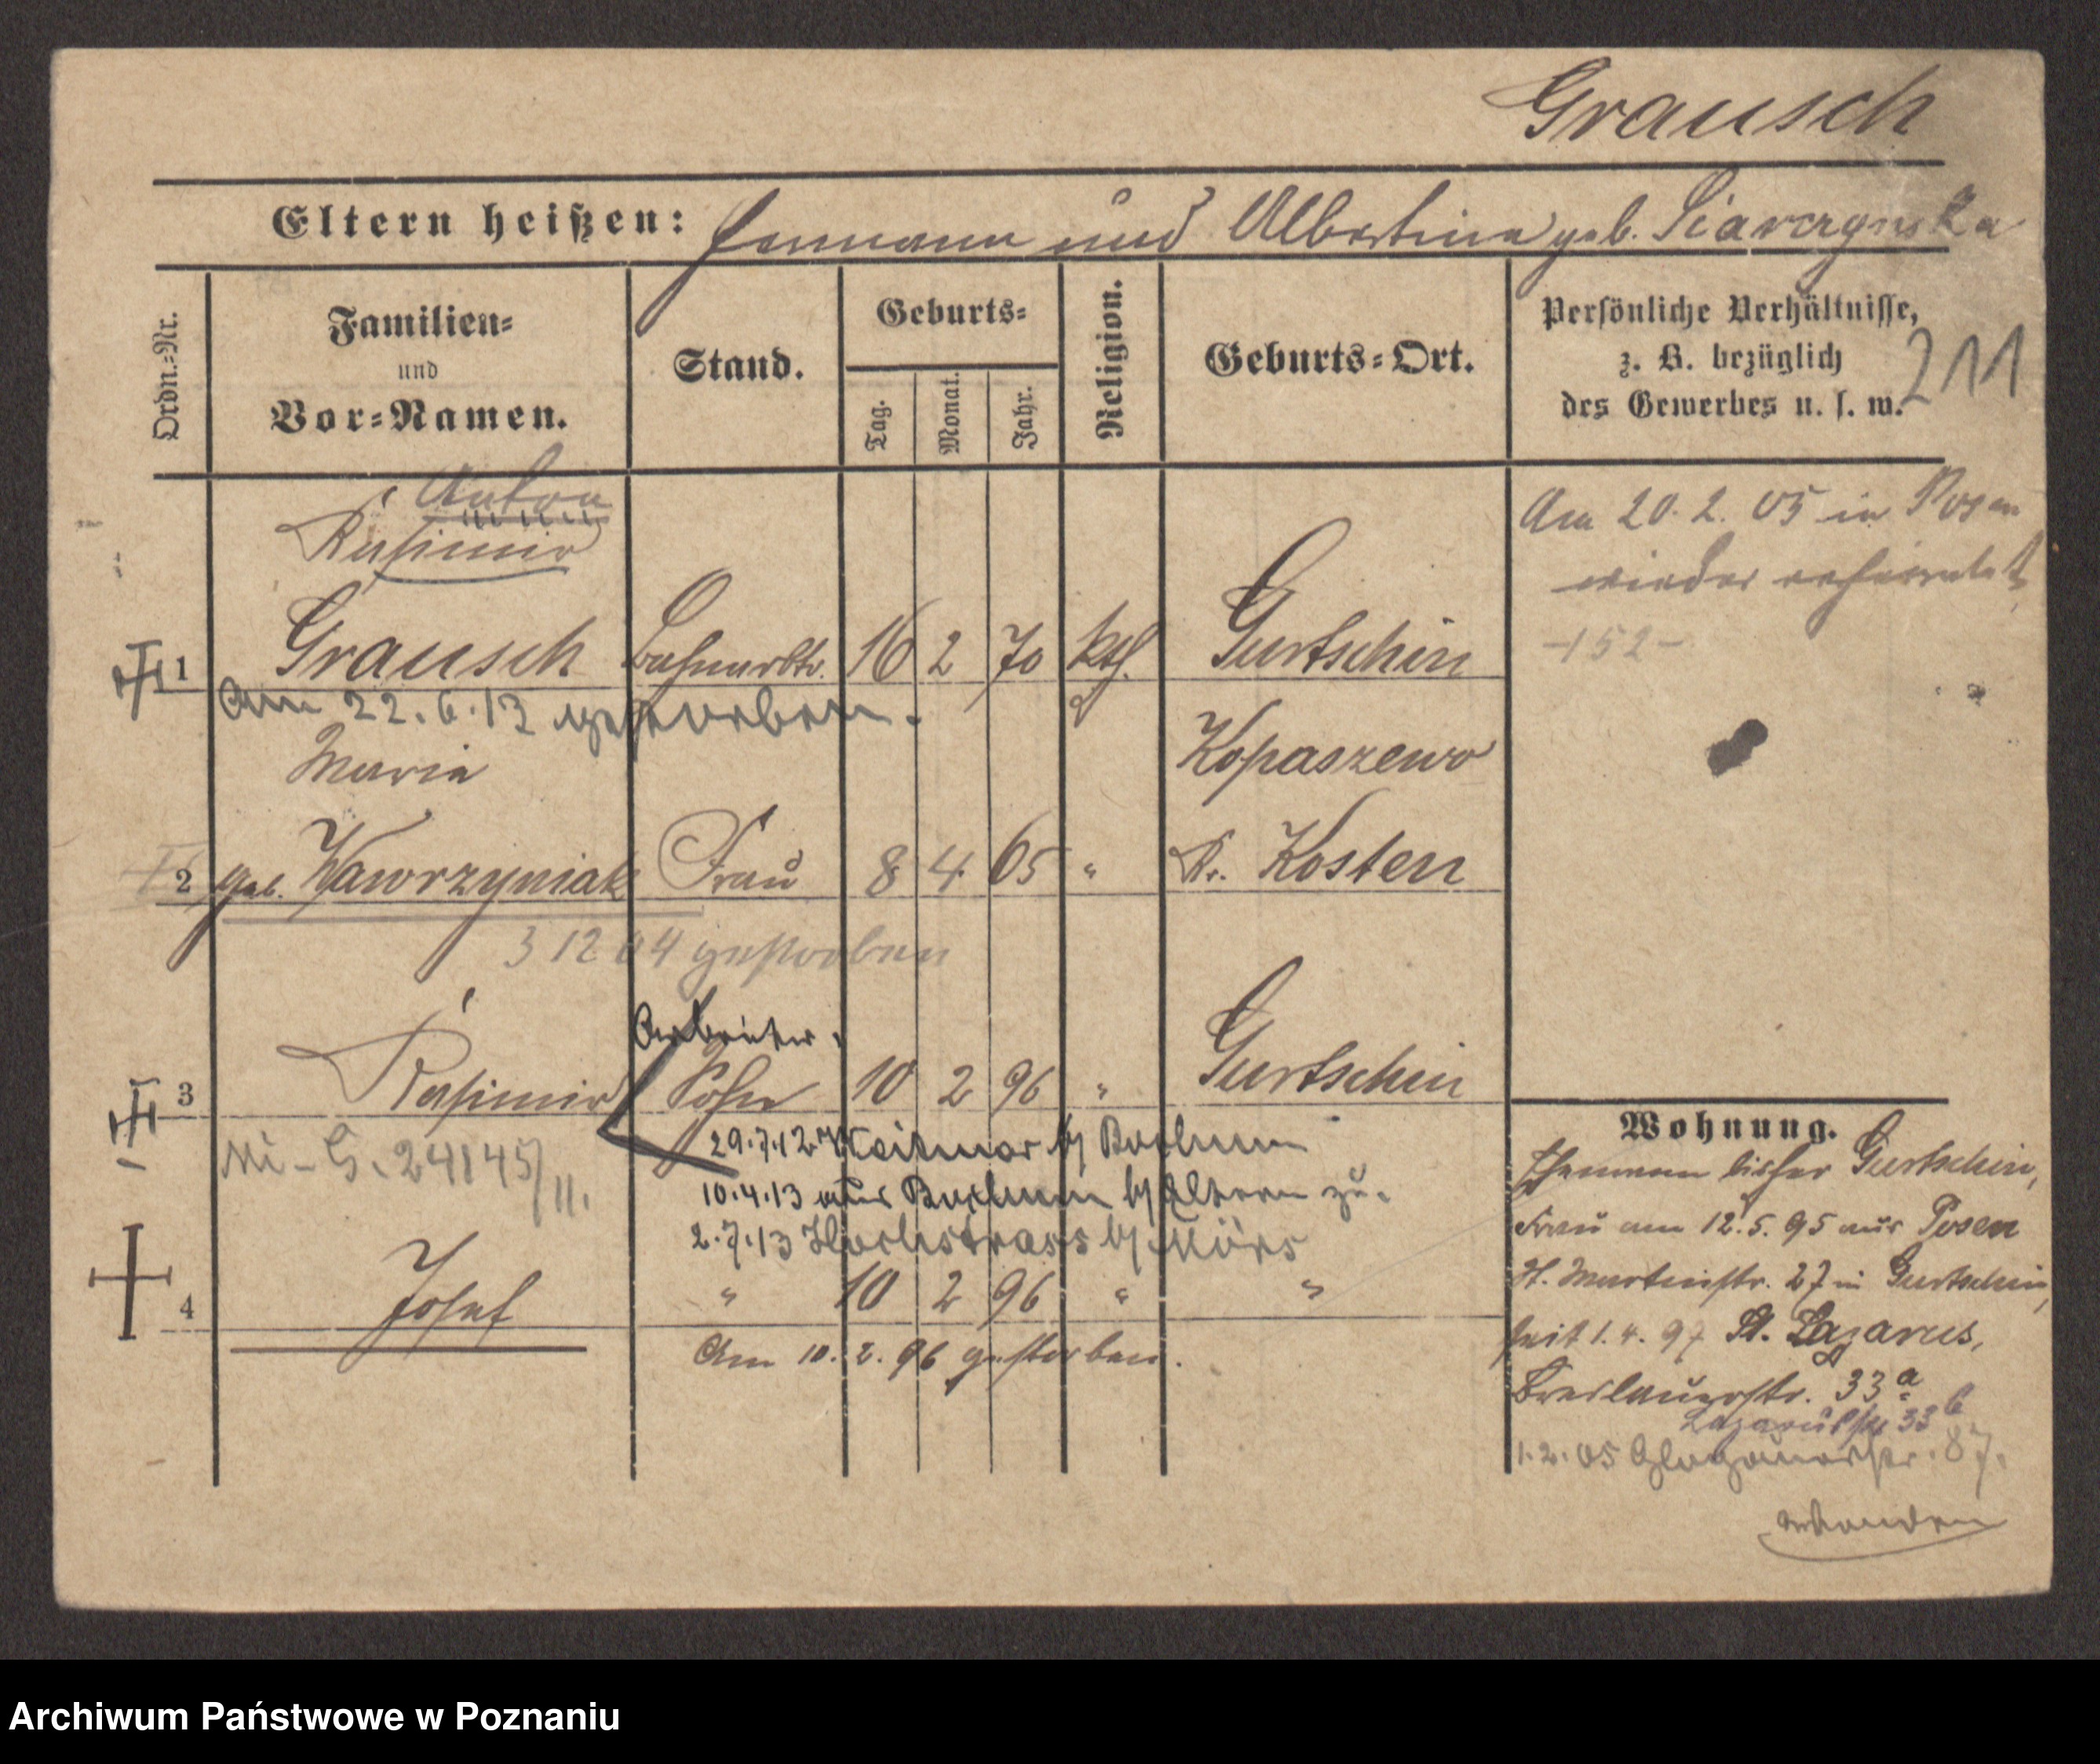 Grausch
Eltern heißen: Hermann und Albertina geb. Siavczynska
Ordn.=Nr.
Familien=
und
Vor=Namen.
Stand.
Geburts=
Tag.
Monat.
Jahr.
Religion.
Geburts=Ort.
Persönliche Verhältnisse,
z. B. bezüglich
des Gewerbes u. s. w.
211
Anton
Kasimir
1 Grausch Bahnarbtr. 16 2 70 kth. Gurtschin
Am 22.6.13 gestorben.
Maria Kopaszewo
2 geb. Wawrzyniak Frau 8 4 65 " Kr. Kosten
3 12 04 gestorben
Arbeiter.
3 Kasimir Sohn 10 2 96 " Gurtschin
29.7.12 Weitmar b/ Bochum
24145/11.
10.4.13 aus Bochum b/ Eltern zu.
2.7.13 Hochstrass b/ Mörs
4 Josef " 10 2 96 " "
Am 10. 2. 96 gestorben.
Am 20. 2. 05 in Posen
wieder verheiratet
-152-
Wohnung.
Ehemann bisher Gurtschin,
Frau am 12.5.95 aus Posen
St. Martinstr. 27 in Gurtschin,
seit 1.4.97 St. Lazarus,
Breslauerstr. 33a
Lazarusstr 33b
1.2.05 Glogauerstr. 87.
Archiwum Państwowe w Poznaniu